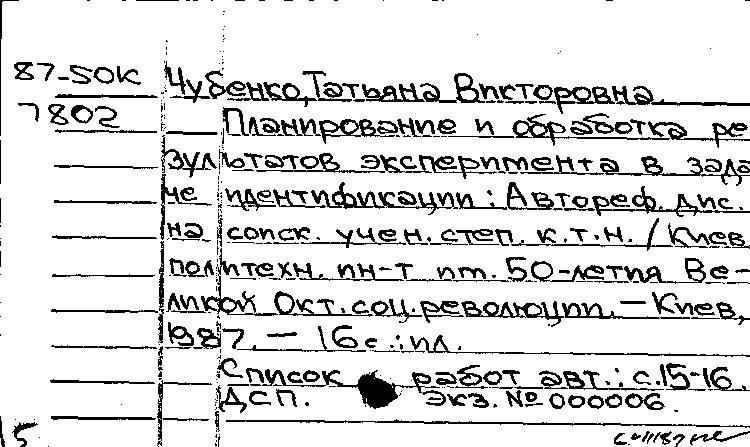 87-50К Чубенко, Татьяна Викторовна.
7802 Планирование и обработка ре
зультатов эксперимента в зада
че идентификации : Автореф. дис.
на соиск. учен. степ. к.т.н. / Киев.
политехн. ин-т им. 50-летия Ве-
ликой Окт. соц. революции. — Киев,
1987. — 16 с. : ил.
Список работ авт.: с. 15-16.
ДСП. Экз. № 000006.
15